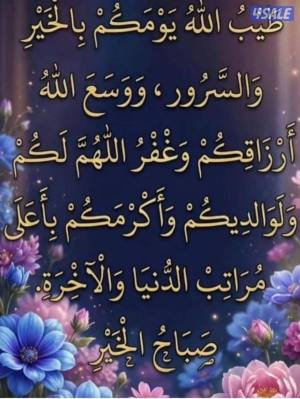 4SALE
طَيِّبُ اللهُ يَوْمَكُمْ بِالْخَيْرِ
وَالسَّرُورِ ، وَوَسَعَ اللهُ
أَرْزَاقِكُمْ وَغْفْرُ اللهُمَّ لَكُمْ
وَلَوَالِدِيكُمْ وَأَكْرْمَكُمْ بِأَعَلَى
مُرَاتِبْ الدُّنيَا وَالْآخِرَةِ.
صَبَاحُ الْخَيْرِ